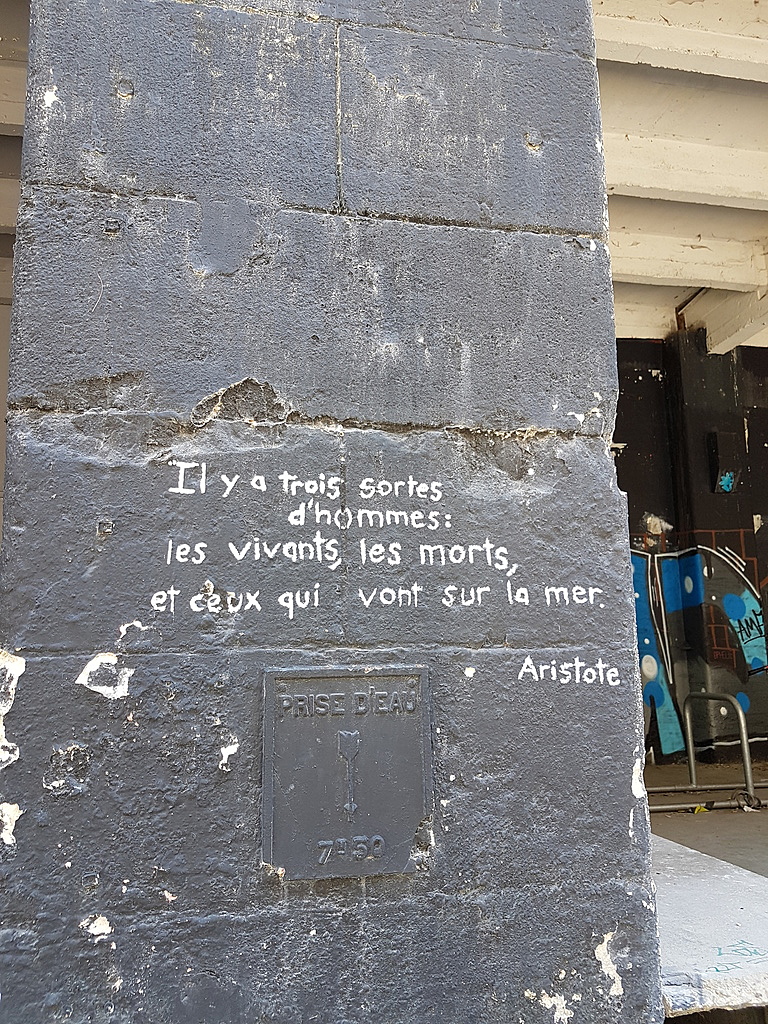 Il y a trois sortes
d'hommes:
les vivants, les morts,
et ceux qui vont sur la mer.
Aristote
PRISE D'EAU